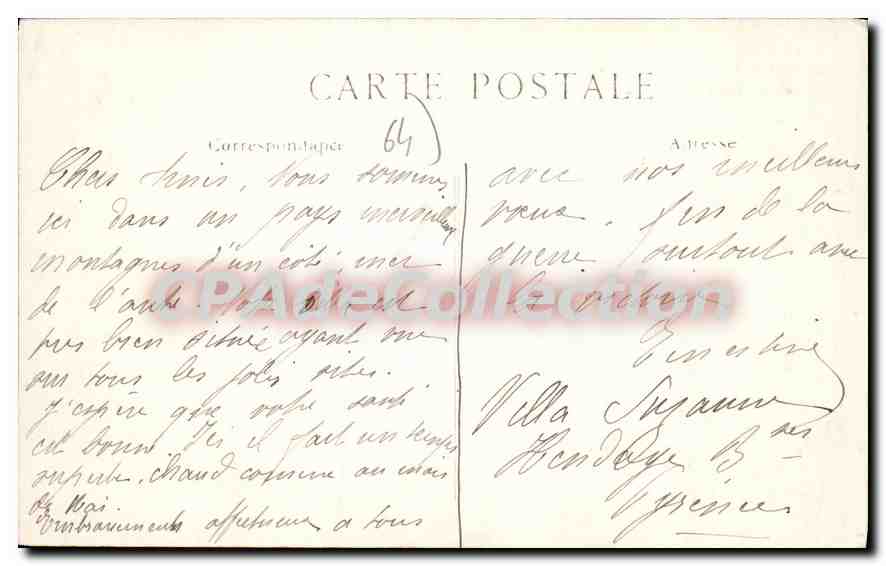 CARTE POSTALE
Correspondance
64
Adresse
Chers Amis, Nous sommes
ici dans un pays merveilleux
montagnes d'un côté, mer
de l'autre. Notre villa est
très bien située ayant vue
sur tous les jolis sites.
J'espère que votre santé
est bonne. Ici il fait un temps
superbe, chaud comme au mois
de Mai.
Embrassements affectueux a tous
avec nos meilleurs
vœux. fin de la
guerre surtout avec
la victoire
Ernestine
Villa Suzanne
Hendaye Bses
Pyrénées
CPAdeCollection